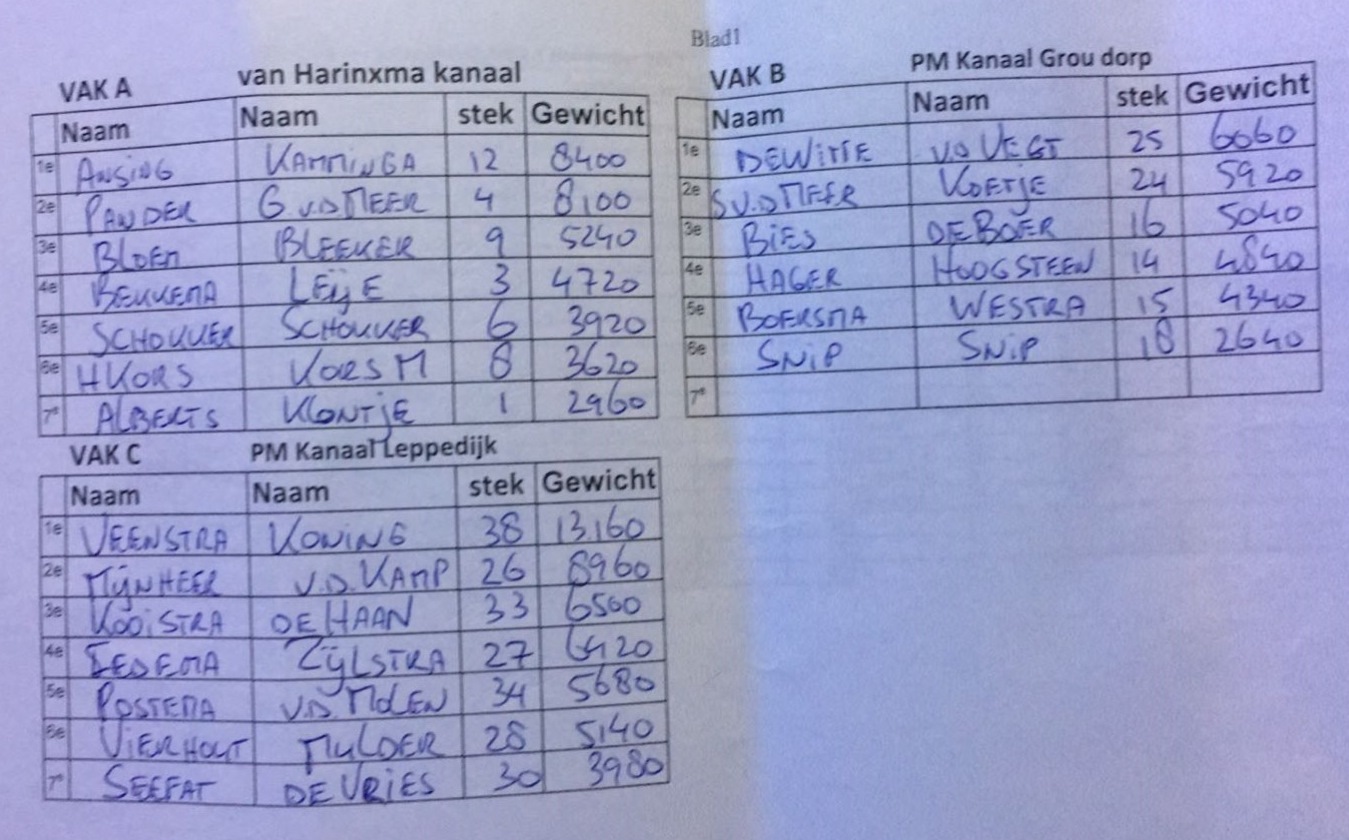 Blad1
VAK A van Harinxma kanaal
Naam Naam stek Gewicht
1e ANSING KAMMINGA 12 8400
2e PANDER G.V.D MEER 4 8100
3e BLOEM BLEEKER 9 5240
4e BEKKEMA LEIJE 3 4720
5e SCHOKKER SCHOKKER 6 3920
6e H KORS KORS M 8 3620
7e ALBERTS KLONTJE 1 2960
VAK B PM Kanaal Grou dorp
Naam Naam stek Gewicht
1e DEWITTE V.D VEGT 25 6060
2e S V.D MEER KOETJE 24 5920
3e BIES DE BOER 16 5040
4e HAGER HOOGSTEEN 14 4840
5e BOERSMA WESTRA 15 4340
6e SNIP SNIP 18 2640
7e
VAK C PM Kanaal Leppedijk
Naam Naam stek Gewicht
1e VEENSTRA KONING 38 13.160
2e MIJNHEER V.D. KAMP 26 8960
3e KOOISTRA DE HAAN 33 6500
4e ZIJLSTRA 27 6420
5e POSTEMA V.D. MOLEN 34 5680
6e VIERHOUT MULDER 28 5140
7e SEEFAT DE VRIES 30 3980